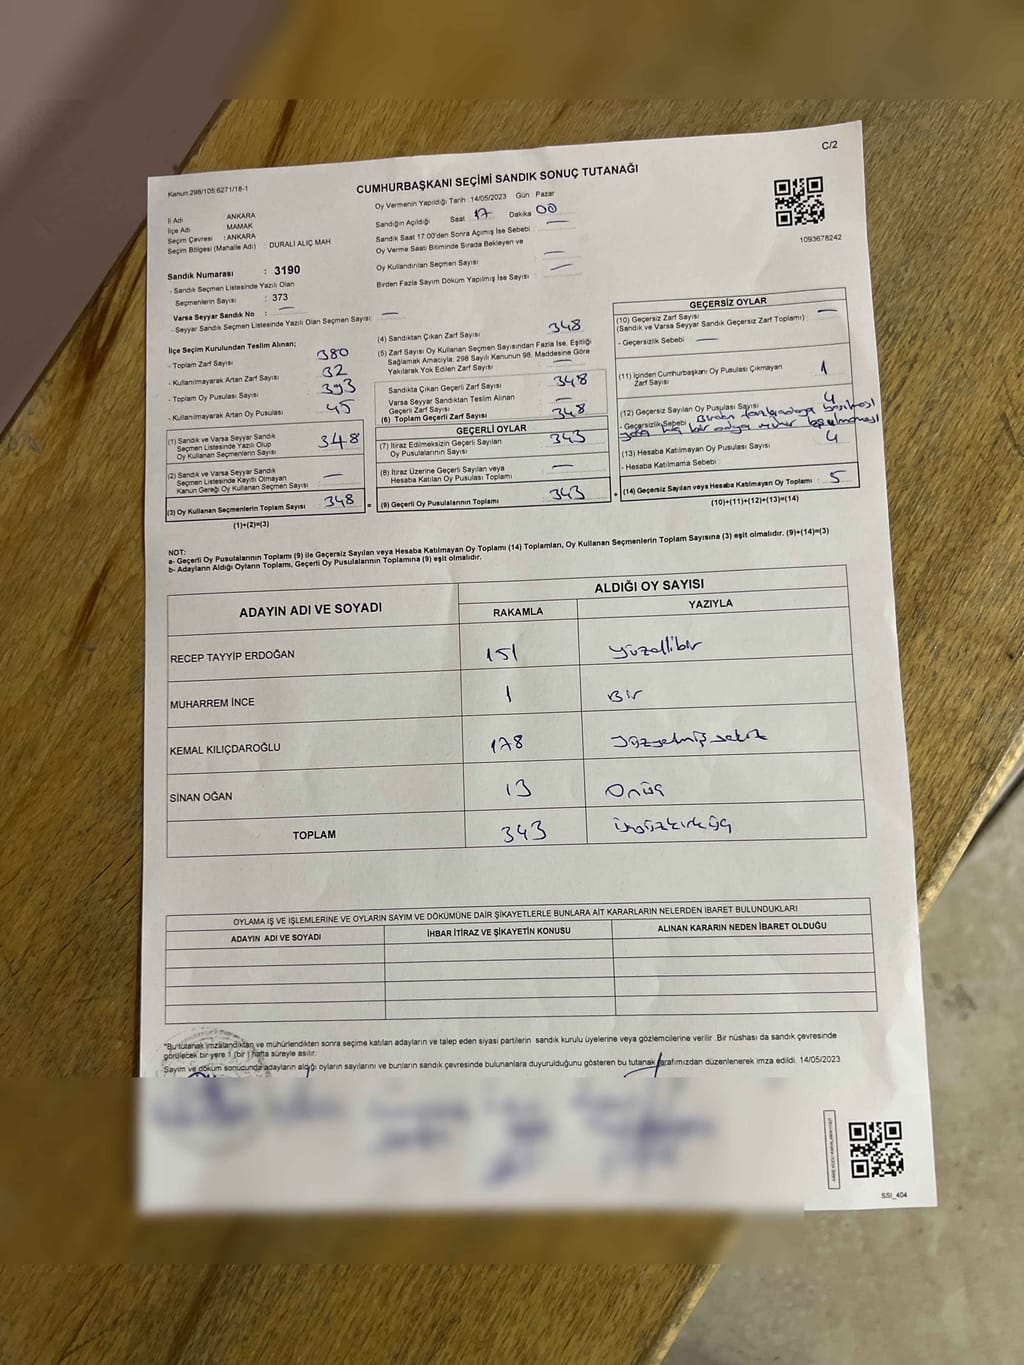 C/2
Kanun 298/105:6271/18-1
CUMHURBAŞKANI SEÇİMİ SANDIK SONUÇ TUTANAĞI
Oy Vermenin Yapıldığı Tarih :14/05/2023 Gün : Pazar
İl Adı : ANKARA
İlçe Adı : MAMAK
Seçim Çevresi : ANKARA
Seçim Bölgesi (Mahalle Adı) : DURALİ ALIÇ MAH.
Sandığın Açıldığı Saat : 17 Dakika : 00
Sandık Saat 17:00'den Sonra Açılmış İse Sebebi : —
Oy Verme Saati Bitiminde Sırada Bekleyen ve
Oy Kullandırılan Seçmen Sayısı —
Birden Fazla Sayım Döküm Yapılmış İse Sayısı : —
1093678242
Sandık Numarası : 3190
- Sandık Seçmen Listesinde Yazılı Olan
Seçmenlerin Sayısı : 373
Varsa Seyyar Sandık No : —
- Seyyar Sandık Seçmen Listesinde Yazılı Olan Seçmen Sayısı: —
İlçe Seçim Kurulundan Teslim Alınan;
- Toplam Zarf Sayısı : 380
- Kullanılmayarak Artan Zarf Sayısı : 32
- Toplam Oy Pusulası Sayısı : 393
- Kullanılmayarak Artan Oy Pusulası : 45
(1) Sandık ve Varsa Seyyar Sandık
Seçmen Listesinde Yazılı Olup
Oy Kullanan Seçmenlerin Sayısı : 348
(2) Sandık ve Varsa Seyyar Sandık
Seçmen Listesinde Kayıtlı Olmayan
Kanun Gereği Oy Kullanan Seçmen Sayısı : —
(3) Oy Kullanan Seçmenlerin Toplam Sayısı : 348
(1)+(2)=(3)
(4) Sandıktan Çıkan Zarf Sayısı : 348
(5) Zarf Sayısı Oy Kullanan Seçmen Sayısından Fazla İse, Eşitliği
Sağlamak Amacıyla, 298 Sayılı Kanunun 98. Maddesine Göre
Yakılarak Yok Edilen Zarf Sayısı : —
Sandıkta Çıkan Geçerli Zarf Sayısı : 348
Varsa Seyyar Sandıktan Teslim Alınan
Geçerli Zarf Sayısı : —
(6) Toplam Geçerli Zarf Sayısı : 348
GEÇERLİ OYLAR
(7) İtiraz Edilmeksizin Geçerli Sayılan
Oy Pusulalarının Sayısı : 343
(8) İtiraz Üzerine Geçerli Sayılan veya
Hesaba Katılan Oy Pusulası Toplamı : —
= (9) Geçerli Oy Pusulalarının Toplamı : 343
GEÇERSİZ OYLAR
(10) Geçersiz Zarf Sayısı : —
(Sandık ve Varsa Seyyar Sandık Geçersiz Zarf Toplamı)
- Geçersizlik Sebebi : —
(11) İçinden Cumhurbaşkanı Oy Pusulası Çıkmayan
Zarf Sayısı : 1
(12) Geçersiz Sayılan Oy Pusulası Sayısı : 4
- Geçersizlik Sebebi : Birden fazla adaya basılması
yada hiç bir adaya mühür basılmaması
(13) Hesaba Katılmayan Oy Pusulası Sayısı : 4
- Hesaba Katılmama Sebebi :
+ (14) Geçersiz Sayılan veya Hesaba Katılmayan Oy Toplamı : 5
(10)+(11)+(12)+(13)=(14)
NOT:
a- Geçerli Oy Pusulalarının Toplamı (9) ile Geçersiz Sayılan veya Hesaba Katılmayan Oy Toplamı (14) Toplamları, Oy Kullanan Seçmenlerin Toplam Sayısına (3) eşit olmalıdır. (9)+(14)=(3)
b- Adayların Aldığı Oyların Toplamı, Geçerli Oy Pusulalarının Toplamına (9) eşit olmalıdır.
ADAYIN ADI VE SOYADI
ALDIĞI OY SAYISI
RAKAMLA YAZIYLA
RECEP TAYYİP ERDOĞAN 151 yüzellibir
MUHARREM İNCE 1 Bir
KEMAL KILIÇDAROĞLU 178 yüzyetmişsekiz
SİNAN OĞAN 13 Onüç
TOPLAM 343 üçyüzkırküç
OYLAMA İŞ VE İŞLEMLERİNE VE OYLARIN SAYIM VE DÖKÜMÜNE DAİR ŞİKAYETLERLE BUNLARA AİT KARARLARIN NELERDEN İBARET BULUNDUKLARI
ADAYIN ADI VE SOYADI İHBAR İTİRAZ VE ŞİKAYETİN KONUSU ALINAN KARARIN NEDEN İBARET OLDUĞU
*Bu tutanak imzalandıktan ve mühürlendikten sonra seçime katılan adayların ve talep eden siyasi partilerin sandık kurulu üyelerine veya gözlemcilerine verilir .Bir nüshası da sandık çevresinde
görülecek bir yere 1 (bir) hafta süreyle asılır.
Sayım ve döküm sonucunda adayların aldığı oyların sayılarını ve bunların sandık çevresinde bulunanlara duyurulduğunu gösteren bu tutanak tarafımızdan düzenlenerek imza edildi. 14/05/2023
SSİ_404